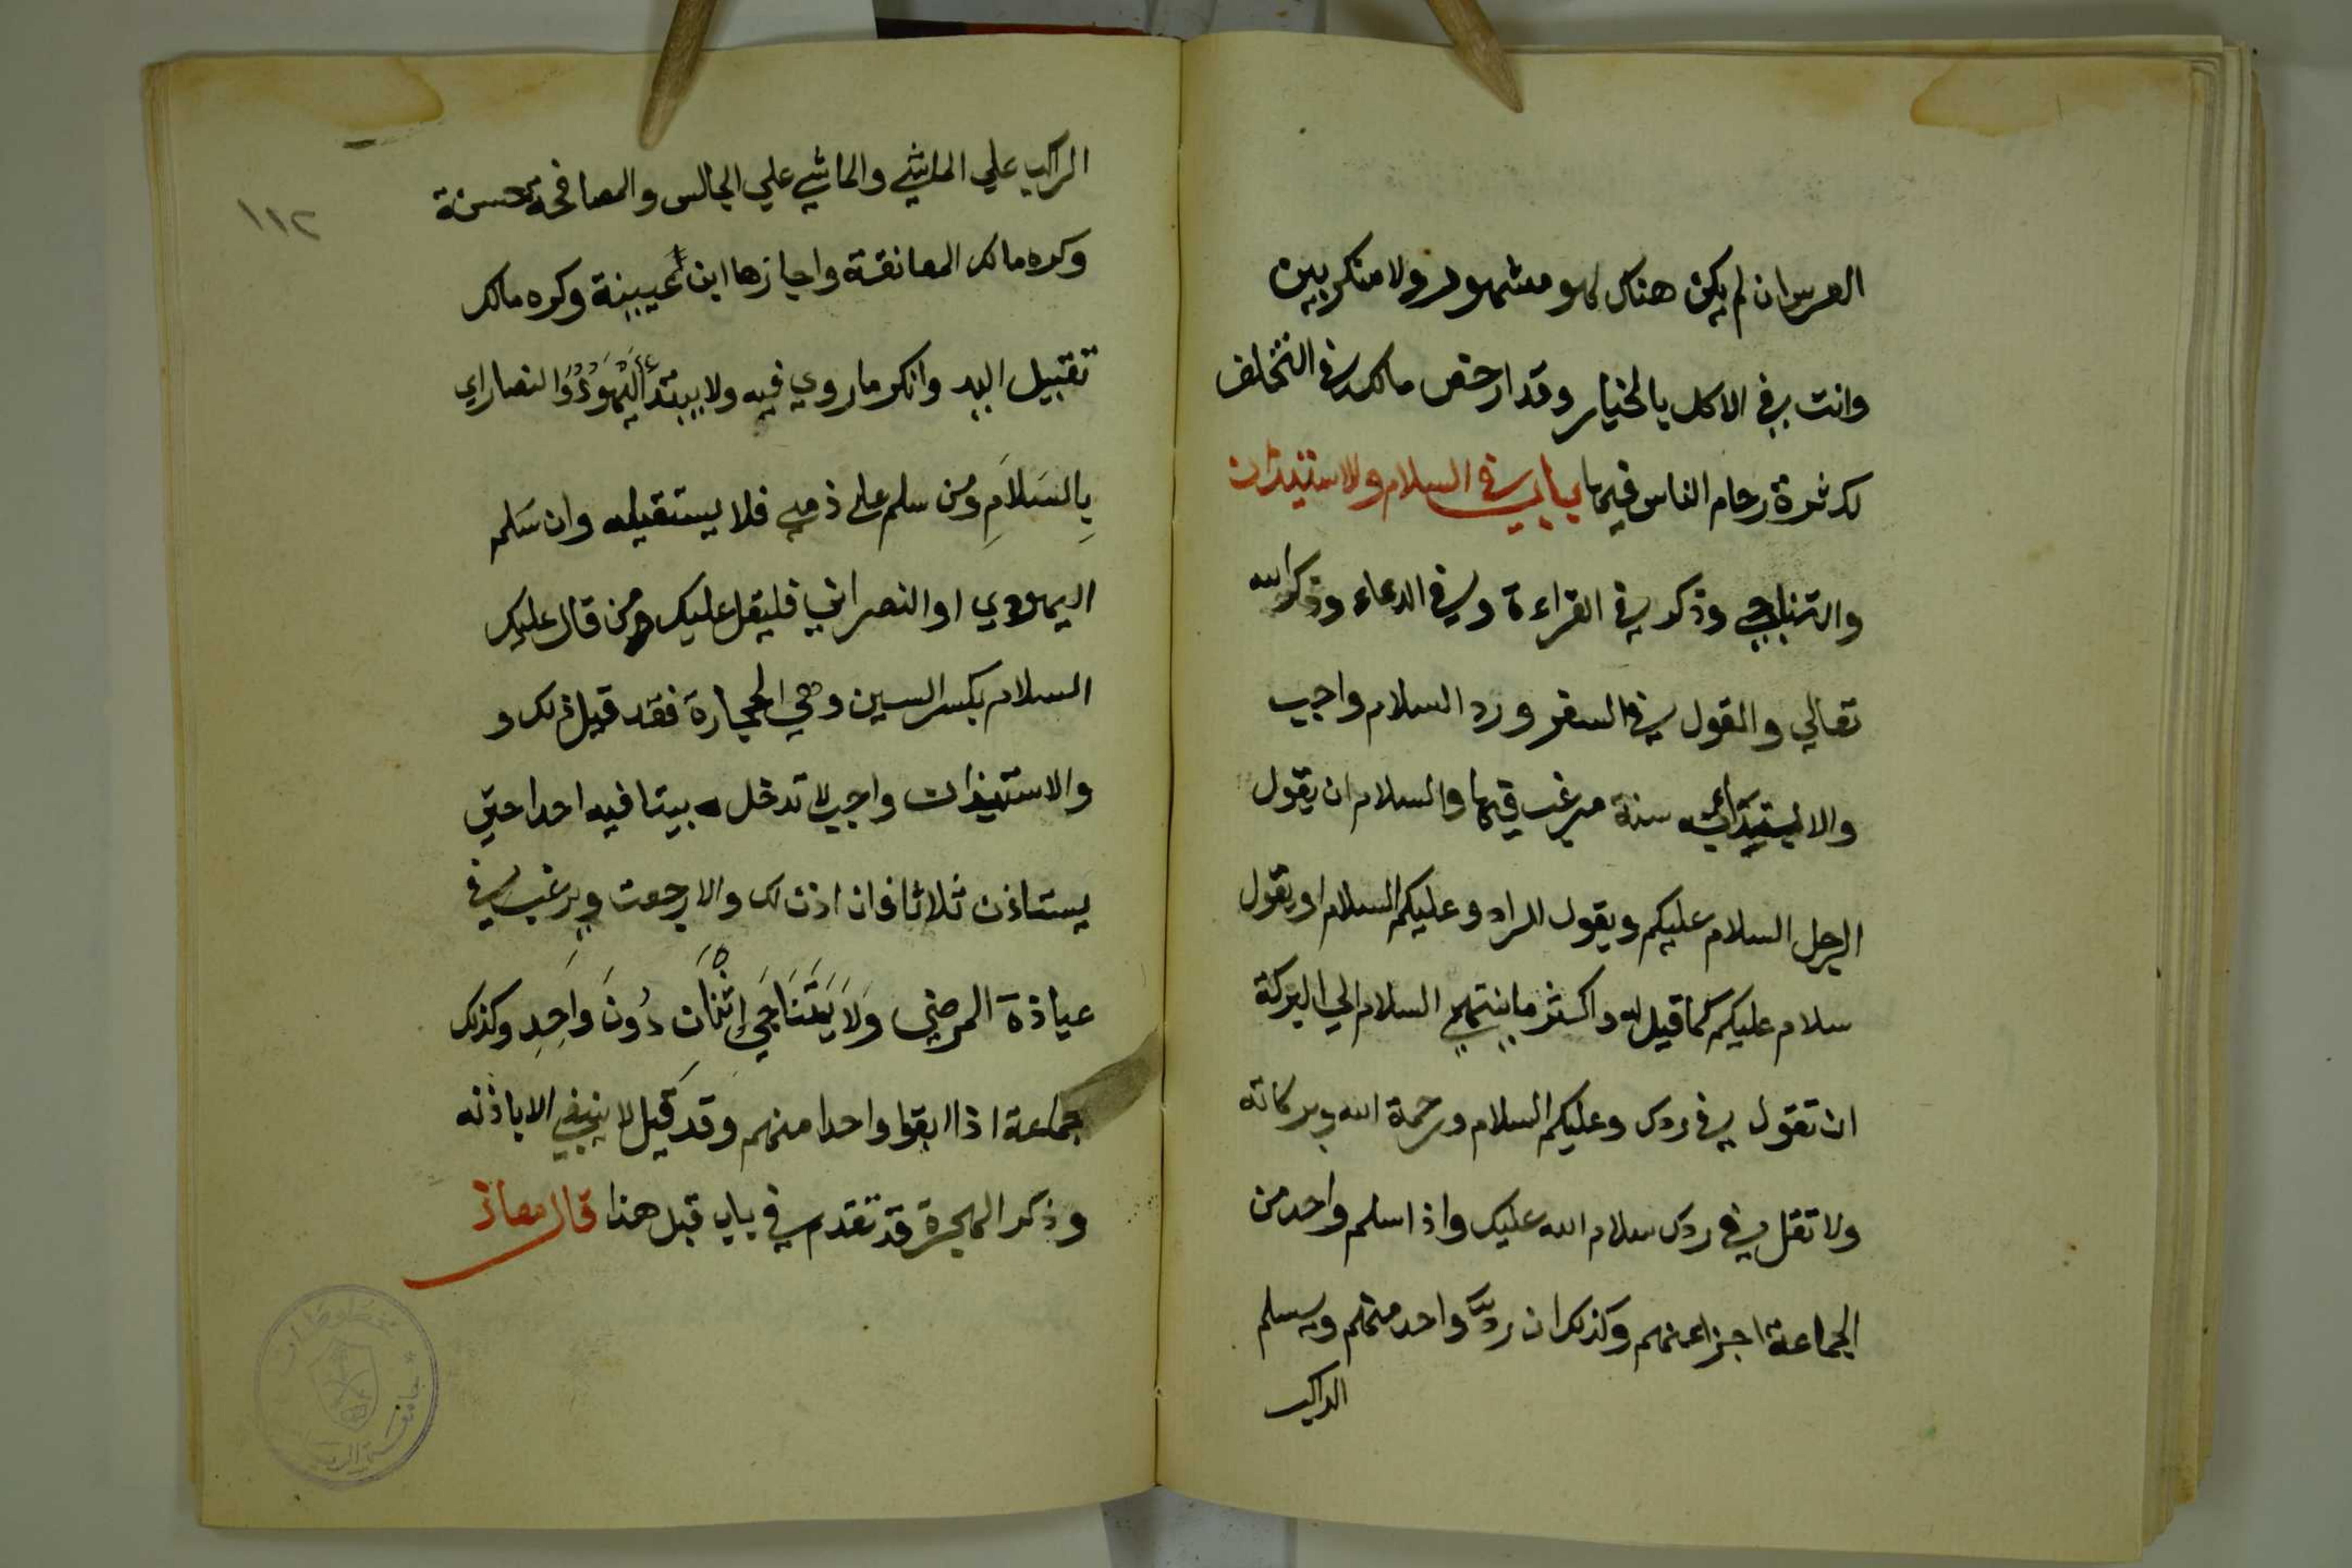 العرس ان لم يكن هناك لهو مشهور ولا منكر بين
وانت في الاكل بالخيار وقد ارخص مالك في التخلف
لكثرة زحام الناس فيها باب في السلام والاستيذان
والتناجي وذكر في القراءة وفي الدعاء وذكر الله
تعالي والقول في السفر ورد السلام واجب
سنة مرغب فيها والسلام ان يقول
الرجل السلام عليكم ويقول الراد وعليكم السلام او يقول
سلام عليكم كما قيل له واكثر ما ينتهي السلام الي البركة
ان تقول في ردك وعليكم السلام ورحمة الله وبركاته
ولا تقل في ردك سلام الله عليك واذا سلم واحد من
الجماعة اجزا عنهم وكذلك ان رد واحد منهم ويسلم
الراكب
الراكب علي الماشي والماشي علي الجالس والمصافحة حسنة
وكره مالك المعانقة واجازها ابن عيينة وكره مالك
تقبيل اليد وانكر ما روي فيه ولا يبتدأ اليَهُودُ والنصاراي
بِالسَلَامِ ومن سلم علي ذمي فلا يستقيله وان سَلم
اليهودي او النصراني فليقل عليك ومن قال عليك
السلام بكسر السين وهي الحجارة فقد قيل ذلك و
والاستيذان واجب لا تدخل بيتا فيه احدا حتي
يستاذن ثلاثا فان اذن لك والا رجعت ويرغب في
عياذة المرضي وَلَا يَتَنَاجَي إِثْنَان دُونَ وَاحِدِ وكذلك
جماعة اذا ابقوا واحدا منهم وقد قيل لا ينبغي الا باذنه
وذكر الهجرة قد تقدم في باب قبل هذا قال معاذ
١١٢
مخطوطات
جامعة الرياض